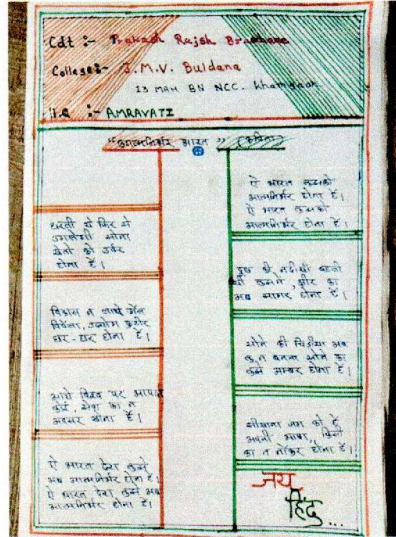 Cdt :- Prakash Rajsh
College:- J.M.V. Buldana
13 MAH BN NCC. Khamgaon
:- AMRAVATI
"आत्मनिर्भर भारत" (कविता)
धरती से फिर से
उगलेगी सोना
खेतों को उर्वर
होना है।
विकास न
उद्योग कुटीर
घर-घर होना है।
आये विपदा पर आपदा
कोई, सेवा का न
अवसर खोना है।
ऐ भारत ऐसा तुम्हे
अब आत्मनिर्भर होना है।
ऐ भारत ऐसा तुम्हे अब
आत्मनिर्भर होना है।
ऐ भारत तुमको
आत्मनिर्भर होना है।
ऐ भारत तुमको
आत्मनिर्भर होना है।
दूध की नदीयाँ बहती
का
अब सागर होना है।
सोने की चिड़ीया अब
तू न बनना सोने का
तुम्हे अम्बर होना है।
जग को है
अपनी भाषा, किसी
का न नौकर होना है।
जय
हिंद...